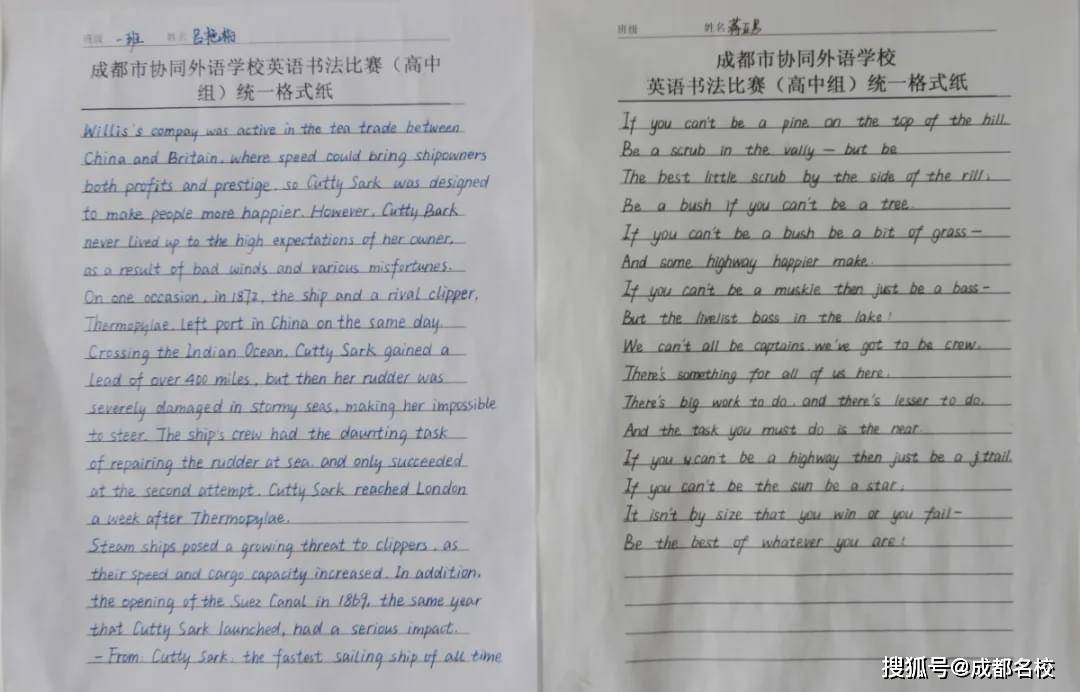 班级 一班 姓名 吕艳梅
成都市协同外语学校英语书法比赛（高中
组）统一格式纸
Willis's compay was active in the tea trade between
China and Britain, where speed could bring shipowners
both profits and prestige, so Cutty Sark was designed
to make people more happier. However, Cutty Bark
never lived up to the high expectations of her owner,
as a result of bad winds and various misfortunes.
On one occasion, in 1872, the ship and a rival clipper,
Thermopylae, left port in China on the same day.
Crossing the Indian Ocean, Cutty Sark gained a
lead of over 400 miles, but then her rudder was
severely damaged in stormy seas, making her impossible
to steer. The ship's crew had the daunting task
of repairing the rudder at sea, and only succeeded
at the second attempt. Cutty Sark reached London
a week after Thermopylae.
Steam ships posed a growing threat to clippers, as
their speed and cargo capacity increased. In addition,
the opening of the Suez Canal in 1869, the same year
that Cutty Sark launched, had a serious impact.
- From: Cutty Sark: the fastest sailing ship of all time
班级 姓名 蒋
成都市协同外语学校
英语书法比赛（高中组）统一格式纸
If you can't be a pine on the top of the hill
Be a scrub in the vally — but be
The best little scrub by the side of the rill.
Be a bush if you can't be a tree.
If you can't be a bush be a bit of grass —
And some highway happier make.
If you can't be a muskie then just be a bass —
But the livelist bass in the lake!
We can't all be captains, we've got to be crew.
There's something for all of us here.
There's big work to do, and there's lesser to do.
And the task you must do is the near.
If you can't be a highway then just be a trail.
If you can't be the sun be a star;
It isn't by size that you win or you fail —
Be the best of whatever you are!
搜狐号@成都名校